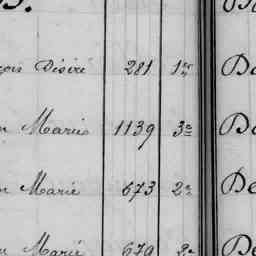 çois Désiré 281 1er
n Marie 1139 3e
n Marie 673 2e De
n Marie 679 2e De